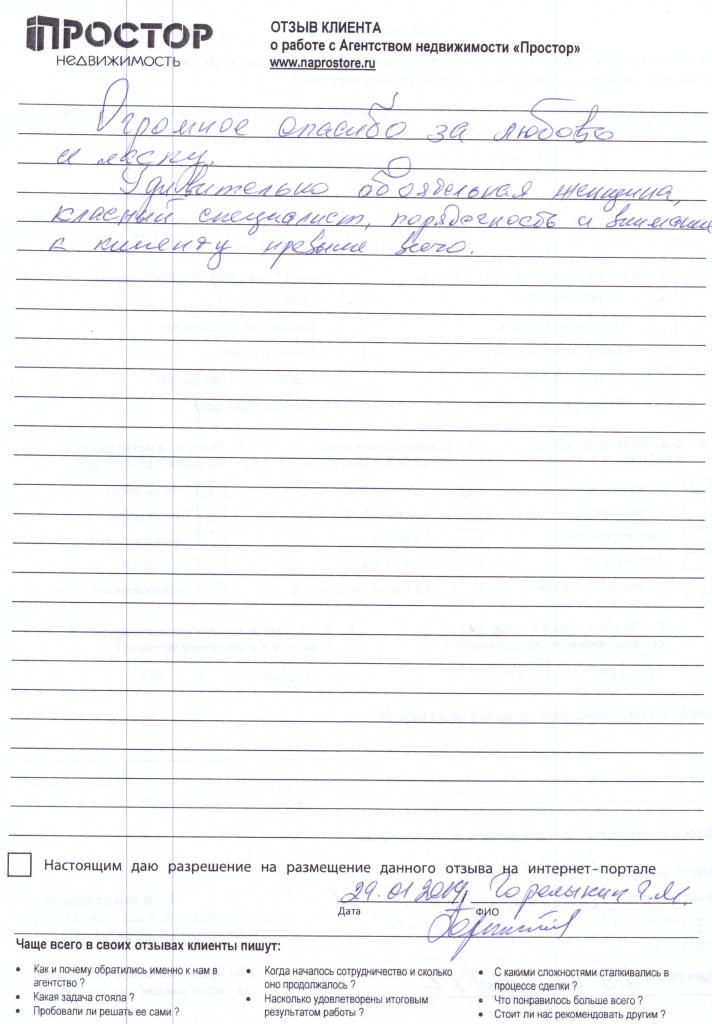 ПРОСТОР
НЕДВИЖИМОСТЬ
ОТЗЫВ КЛИЕНТА
о работе с Агентством недвижимости «Простор»
www.naprostore.ru
Огромное спасибо за любовь
и ласку.
Удивительно обоятельная женщина,
класный специалист, порядочность и внимание
к клиенту превыше всего.
Настоящим даю разрешение на размещение данного отзыва на интернет-портале
29.01.2019
Дата
ФИО
Чаще всего в своих отзывах клиенты пишут:
• Как и почему обратились именно к нам в
агентство ?
• Какая задача стояла ?
• Пробовали ли решать ее сами ?
• Когда началось сотрудничество и сколько
оно продолжалось ?
• Насколько удовлетворены итоговым
результатом работы ?
• С какими сложностями сталкивались в
процессе сделки ?
• Что понравилось больше всего ?
• Стоит ли нас рекомендовать другим ?